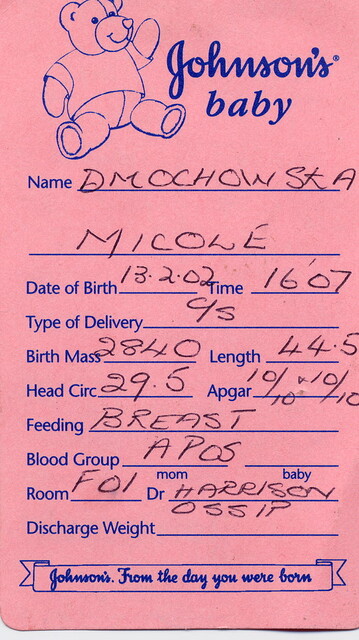 Johnson's®
baby
Name DMOCHOWSKA
MICOLE
Date of Birth 13.2.02 Time 16'07
Type of Delivery C/S
Birth Mass 2840 Length 44.5
Head Circ 29.5 Apgar 10/10 + 10/10
Feeding BREAST
Blood Group A POS
mom baby
Room F01 Dr HARRISON
OSSIP
Discharge Weight
Johnson's. From the day you were born